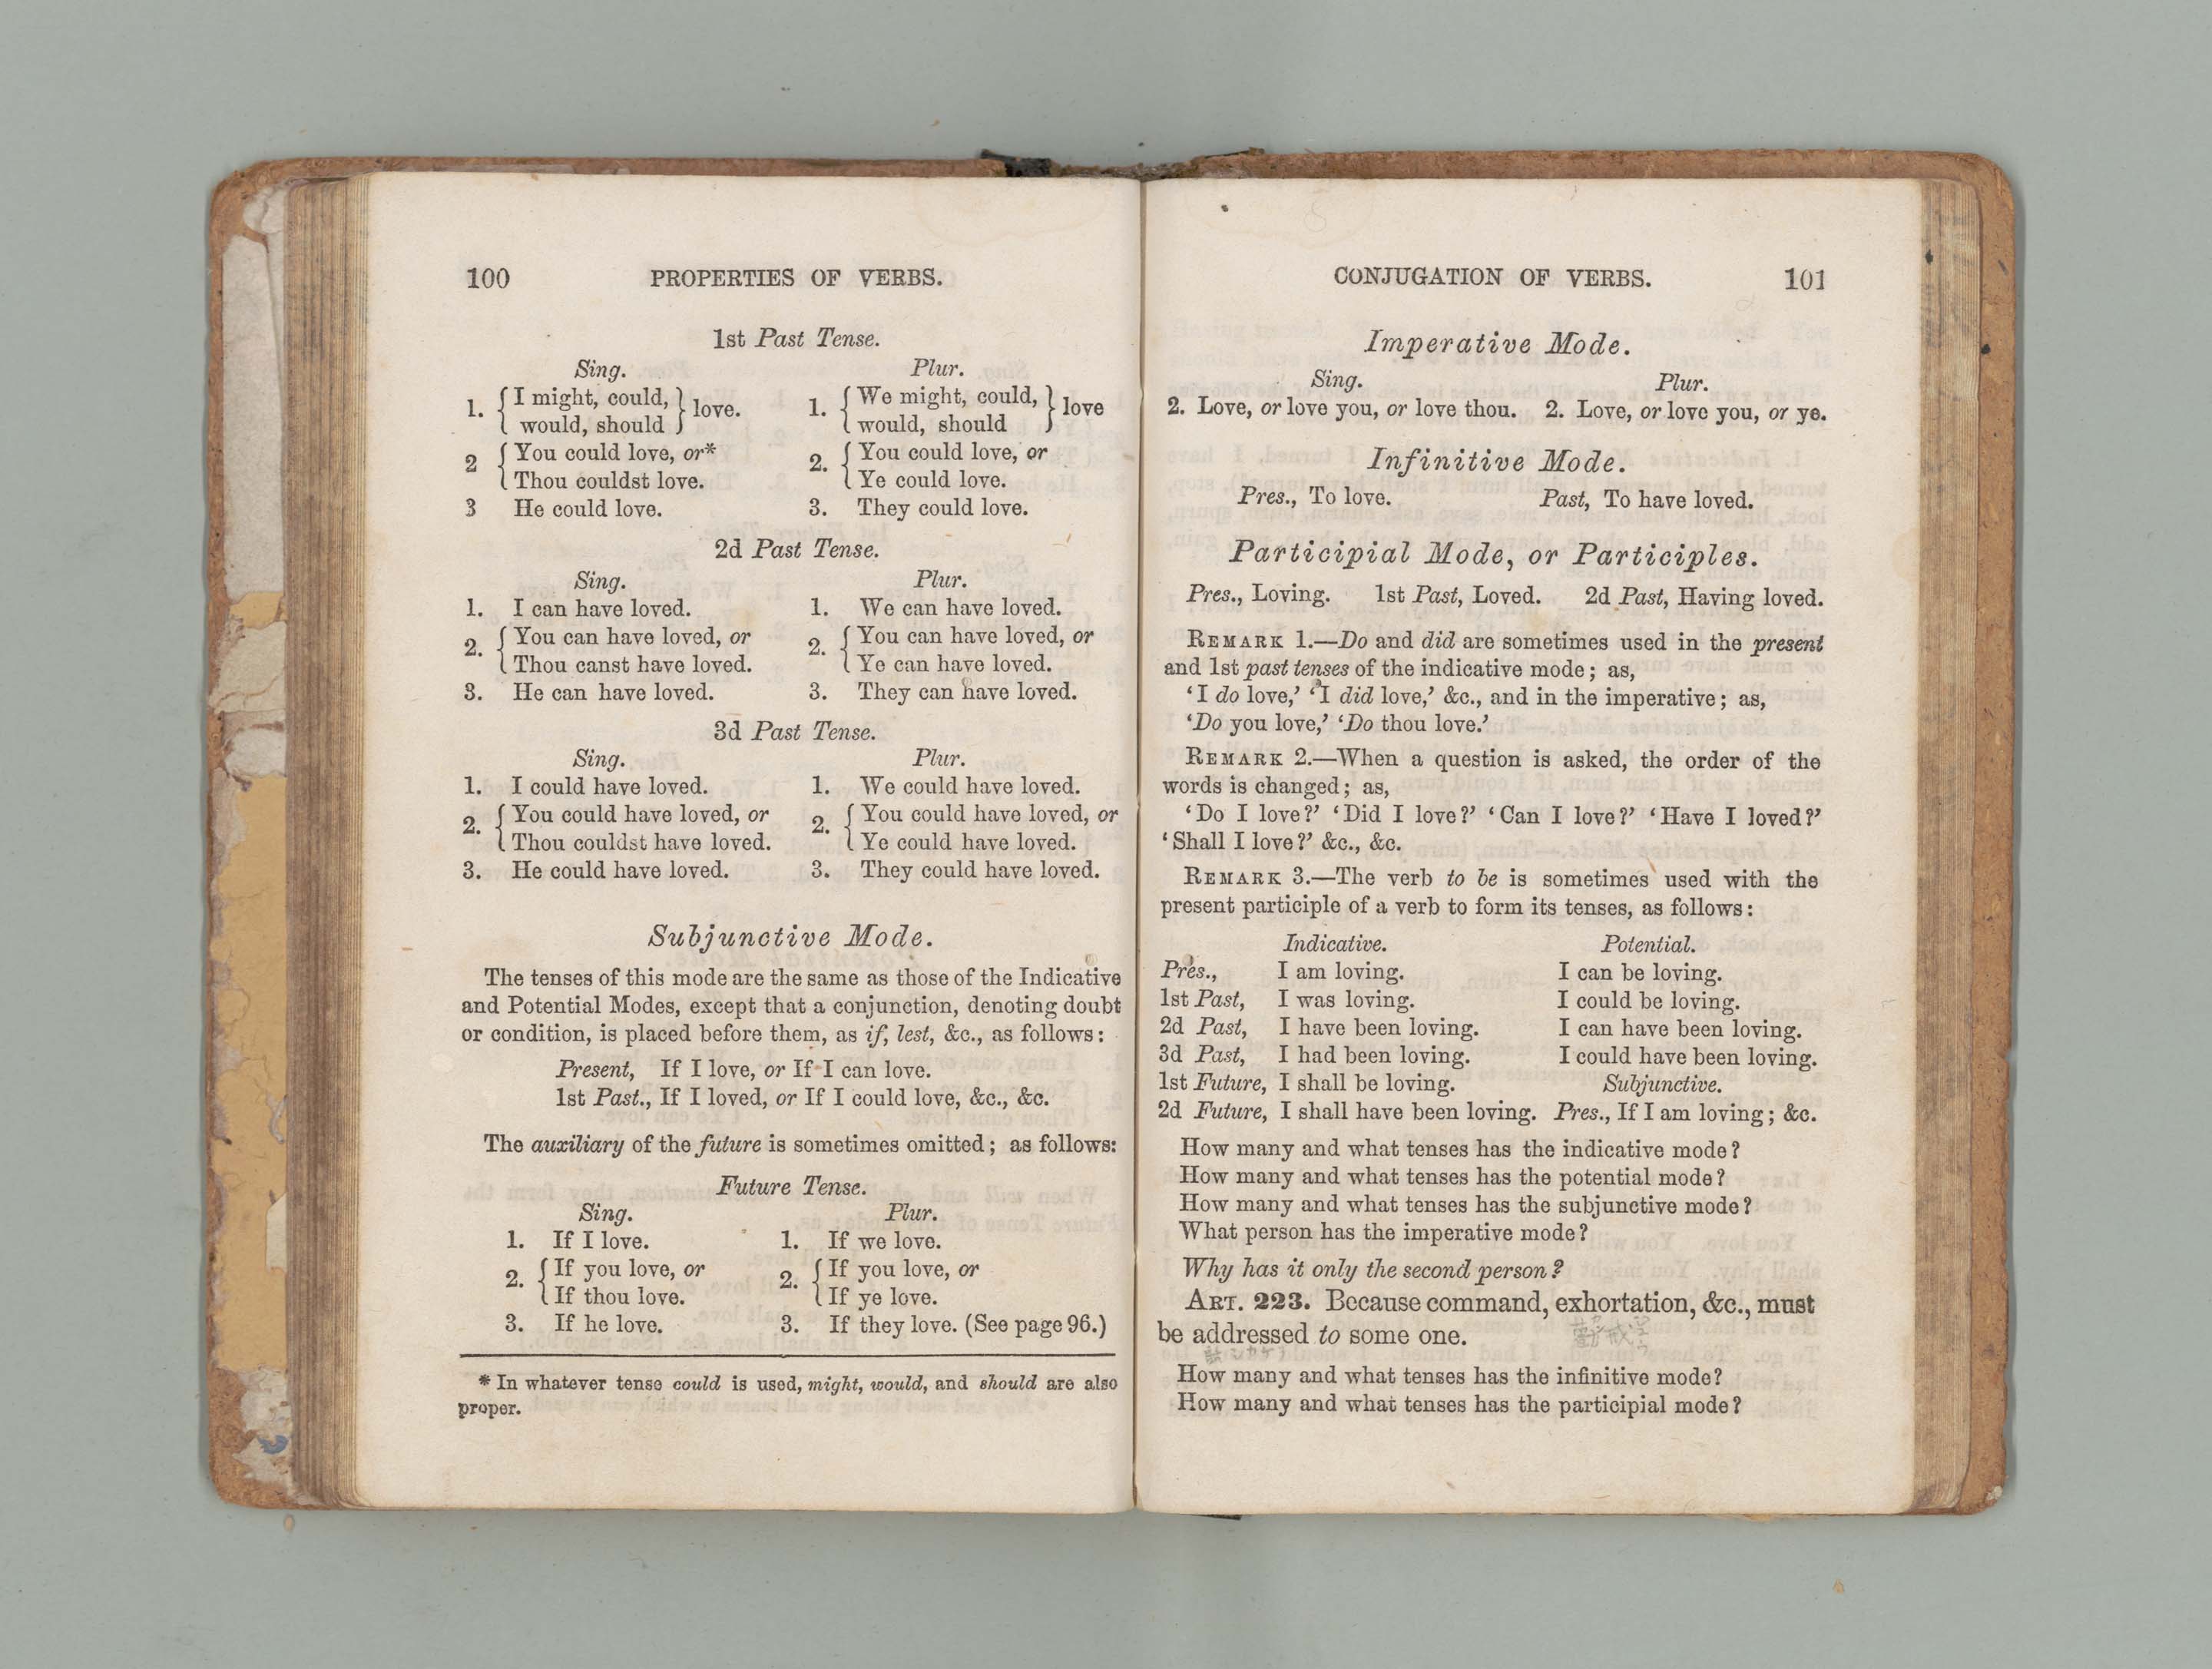 100 PROPERTIES OF VERBS.
1st Past Tense.
Sing. Plur.
1. { I might, could, } love. 1. { We might, could, } love
would, should would, should
2 { You could love, or* 2. { You could love, or
Thou couldst love. Ye could love.
3 He could love. 3. They could love.
2d Past Tense.
Sing. Plur.
1. I can have loved. 1. We can have loved.
2. { You can have loved, or 2. { You can have loved, or
Thou canst have loved. Ye can have loved.
3. He can have loved. 3. They can have loved.
3d Past Tense.
Sing. Plur.
1. I could have loved. 1. We could have loved.
2. { You could have loved, or 2. { You could have loved, or
Thou couldst have loved. Ye could have loved.
3. He could have loved. 3. They could have loved.
Subjunctive Mode.
The tenses of this mode are the same as those of the Indicative
and Potential Modes, except that a conjunction, denoting doubt
or condition, is placed before them, as if, lest, &c., as follows:
Present, If I love, or If I can love.
1st Past., If I loved, or If I could love, &c., &c.
The auxiliary of the future is sometimes omitted; as follows:
Future Tense.
Sing. Plur.
1. If I love. 1. If we love.
2. { If you love, or 2. { If you love, or
If thou love. If ye love.
3. If he love. 3. If they love. (See page 96.)
* In whatever tense could is used, might, would, and should are also
proper.
CONJUGATION OF VERBS. 101
Imperative Mode.
Sing. Plur.
2. Love, or love you, or love thou. 2. Love, or love you, or ye.
Infinitive Mode.
Pres., To love. Past, To have loved.
Participial Mode, or Participles.
Pres., Loving. 1st Past, Loved. 2d Past, Having loved.
REMARK 1.—Do and did are sometimes used in the present
and 1st past tenses of the indicative mode; as,
‘I do love,’ ‘I did love,’ &c., and in the imperative; as,
‘Do you love,’ ‘Do thou love.’
REMARK 2.—When a question is asked, the order of the
words is changed; as,
‘Do I love?’ ‘Did I love?’ ‘Can I love?’ ‘Have I loved?’
‘Shall I love?’ &c., &c.
REMARK 3.—The verb to be is sometimes used with the
present participle of a verb to form its tenses, as follows:
Indicative. Potential.
Pres., I am loving. I can be loving.
1st Past, I was loving. I could be loving.
2d Past, I have been loving. I can have been loving.
3d Past, I had been loving. I could have been loving.
1st Future, I shall be loving. Subjunctive.
2d Future, I shall have been loving. Pres., If I am loving; &c.
How many and what tenses has the indicative mode?
How many and what tenses has the potential mode?
How many and what tenses has the subjunctive mode?
What person has the imperative mode?
Why has it only the second person?
ART. 223. Because command, exhortation, &c., must
be addressed to some one.
How many and what tenses has the infinitive mode?
How many and what tenses has the participial mode?